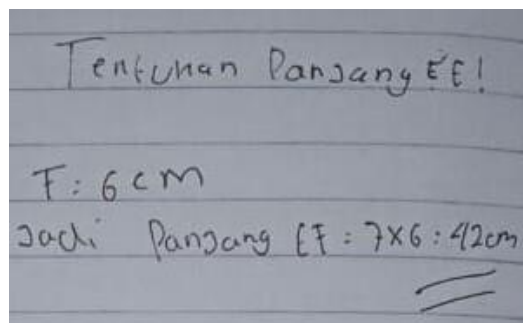 Tentukan Panjang EE!
F: 6 cm
Jadi Panjang EF: 7x6: 42cm